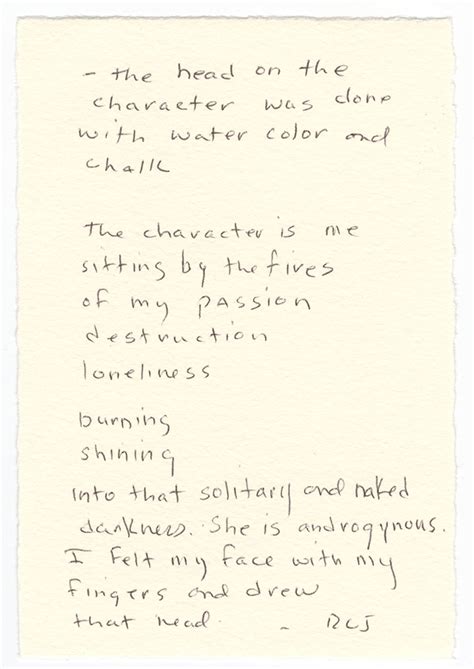 - the head on the
character was done
with water color and
chalk
the character is me
sitting by the fires
of my passion
destruction
loneliness
burning
shining
into that solitary and naked
darkness. She is androgynous.
I felt my face with my
fingers and drew
that head. - RCJ